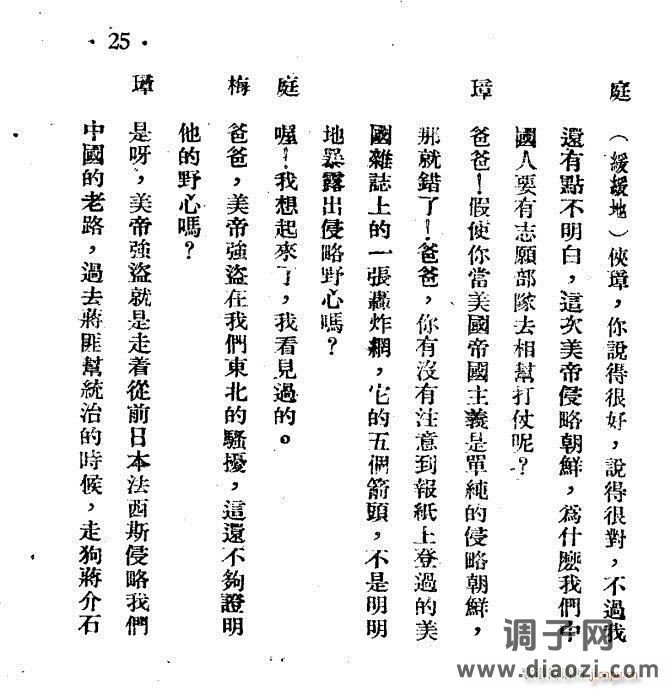 ·25·
庭 （緩緩地）俠璋，你說得很好，說得很對，不過我
還有點不明白，這次美帝侵略朝鮮，爲什麽我們中
國人要有志願部隊去相幫打仗呢？
璋 爸爸！假使你當美國帝國主義是單純的侵略朝鮮，
那就錯了！爸爸，你有沒有注意到報紙上登過的美
國雜誌上的一張轟炸網，它的五個箭頭，不是明明
地暴露出侵略野心嗎？
庭 喔！我想起來了，我看見過的。
梅 爸爸，美帝強盜在我們東北的騷擾，這還不夠證明
他的野心嗎？
璋 是呀，美帝強盜就是走着從前日本法西斯侵略我們
中國的老路，過去蔣匪幫統治的時候，走狗蔣介石
调子网
www.diaozi.com